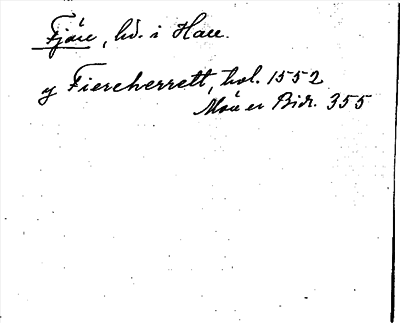 Fjäre, hd. i Hall.
y Fiercherrett, hol. 1552
Möller Bidr. 355